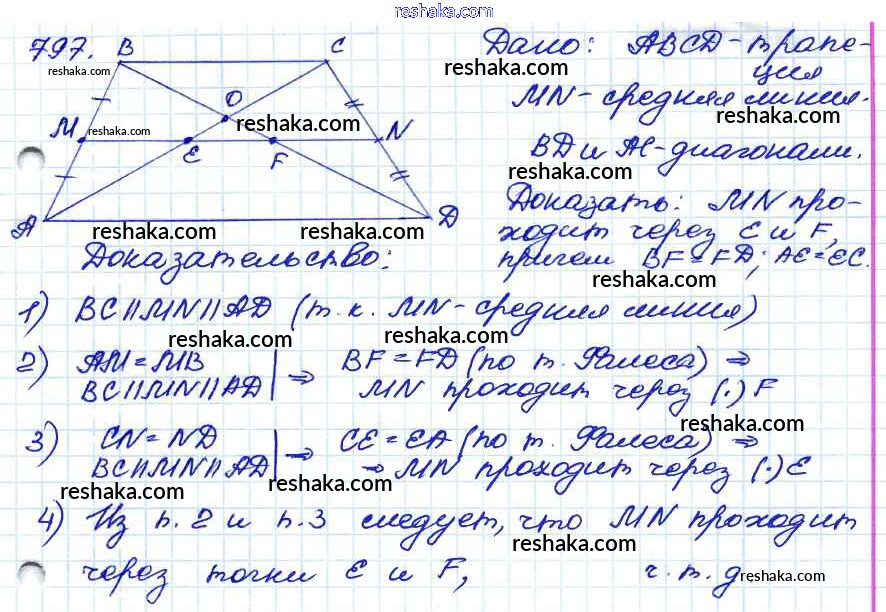 reshaka.com
797. B C Дано: ABCD-трапе-
reshaka.com reshaka.com ция
O MN-средняя линия.
M reshaka.com reshaka.com N reshaka.com
E F BD и AC-диагонали.
reshaka.com
A D Доказать: MN про-
reshaka.com reshaka.com ходит через E и F,
Доказательство: причем BF=FD; AE=EC.
reshaka.com
1) BC||MN||AD (т.к. MN-средняя линия)
reshaka.com reshaka.com
2) AM=MB | ⇒ BF=FD (по т. Фалеса) ⇒
BC||MN||AD | MN проходит через (·) F
reshaka.com
3) CN=ND | ⇒ CE=EA (по т. Фалеса) ⇒
BC||MN||AD | ⇒ MN проходит через (·) E
reshaka.com reshaka.com reshaka.com
4) Из п.2 и п.3 следует, что MN проходит
reshaka.com
через точки E и F, ч.т.д
reshaka.com